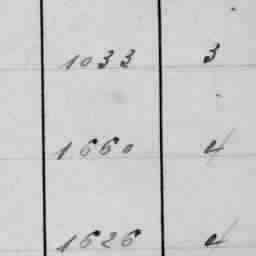 1033 3
1660 4
1626 4